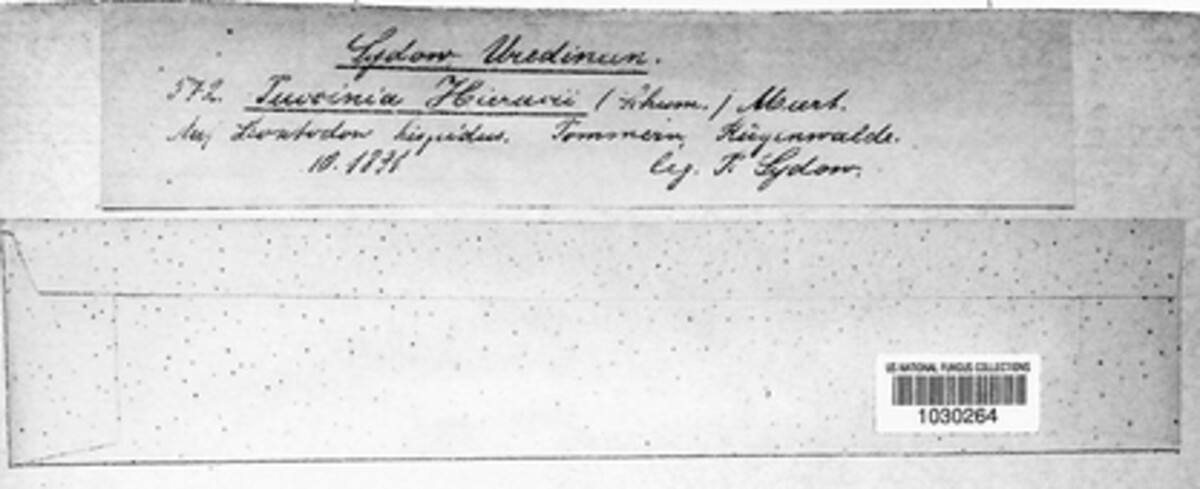 Sydow, Uredineen.
572. Puccinia Hieracii (Schum.) Mart.
Auf Leontodon hispidus. Pommern, Rügenwalde.
10. 1891 leg. P. Sydow.
US NATIONAL FUNGUS COLLECTIONS
1030264